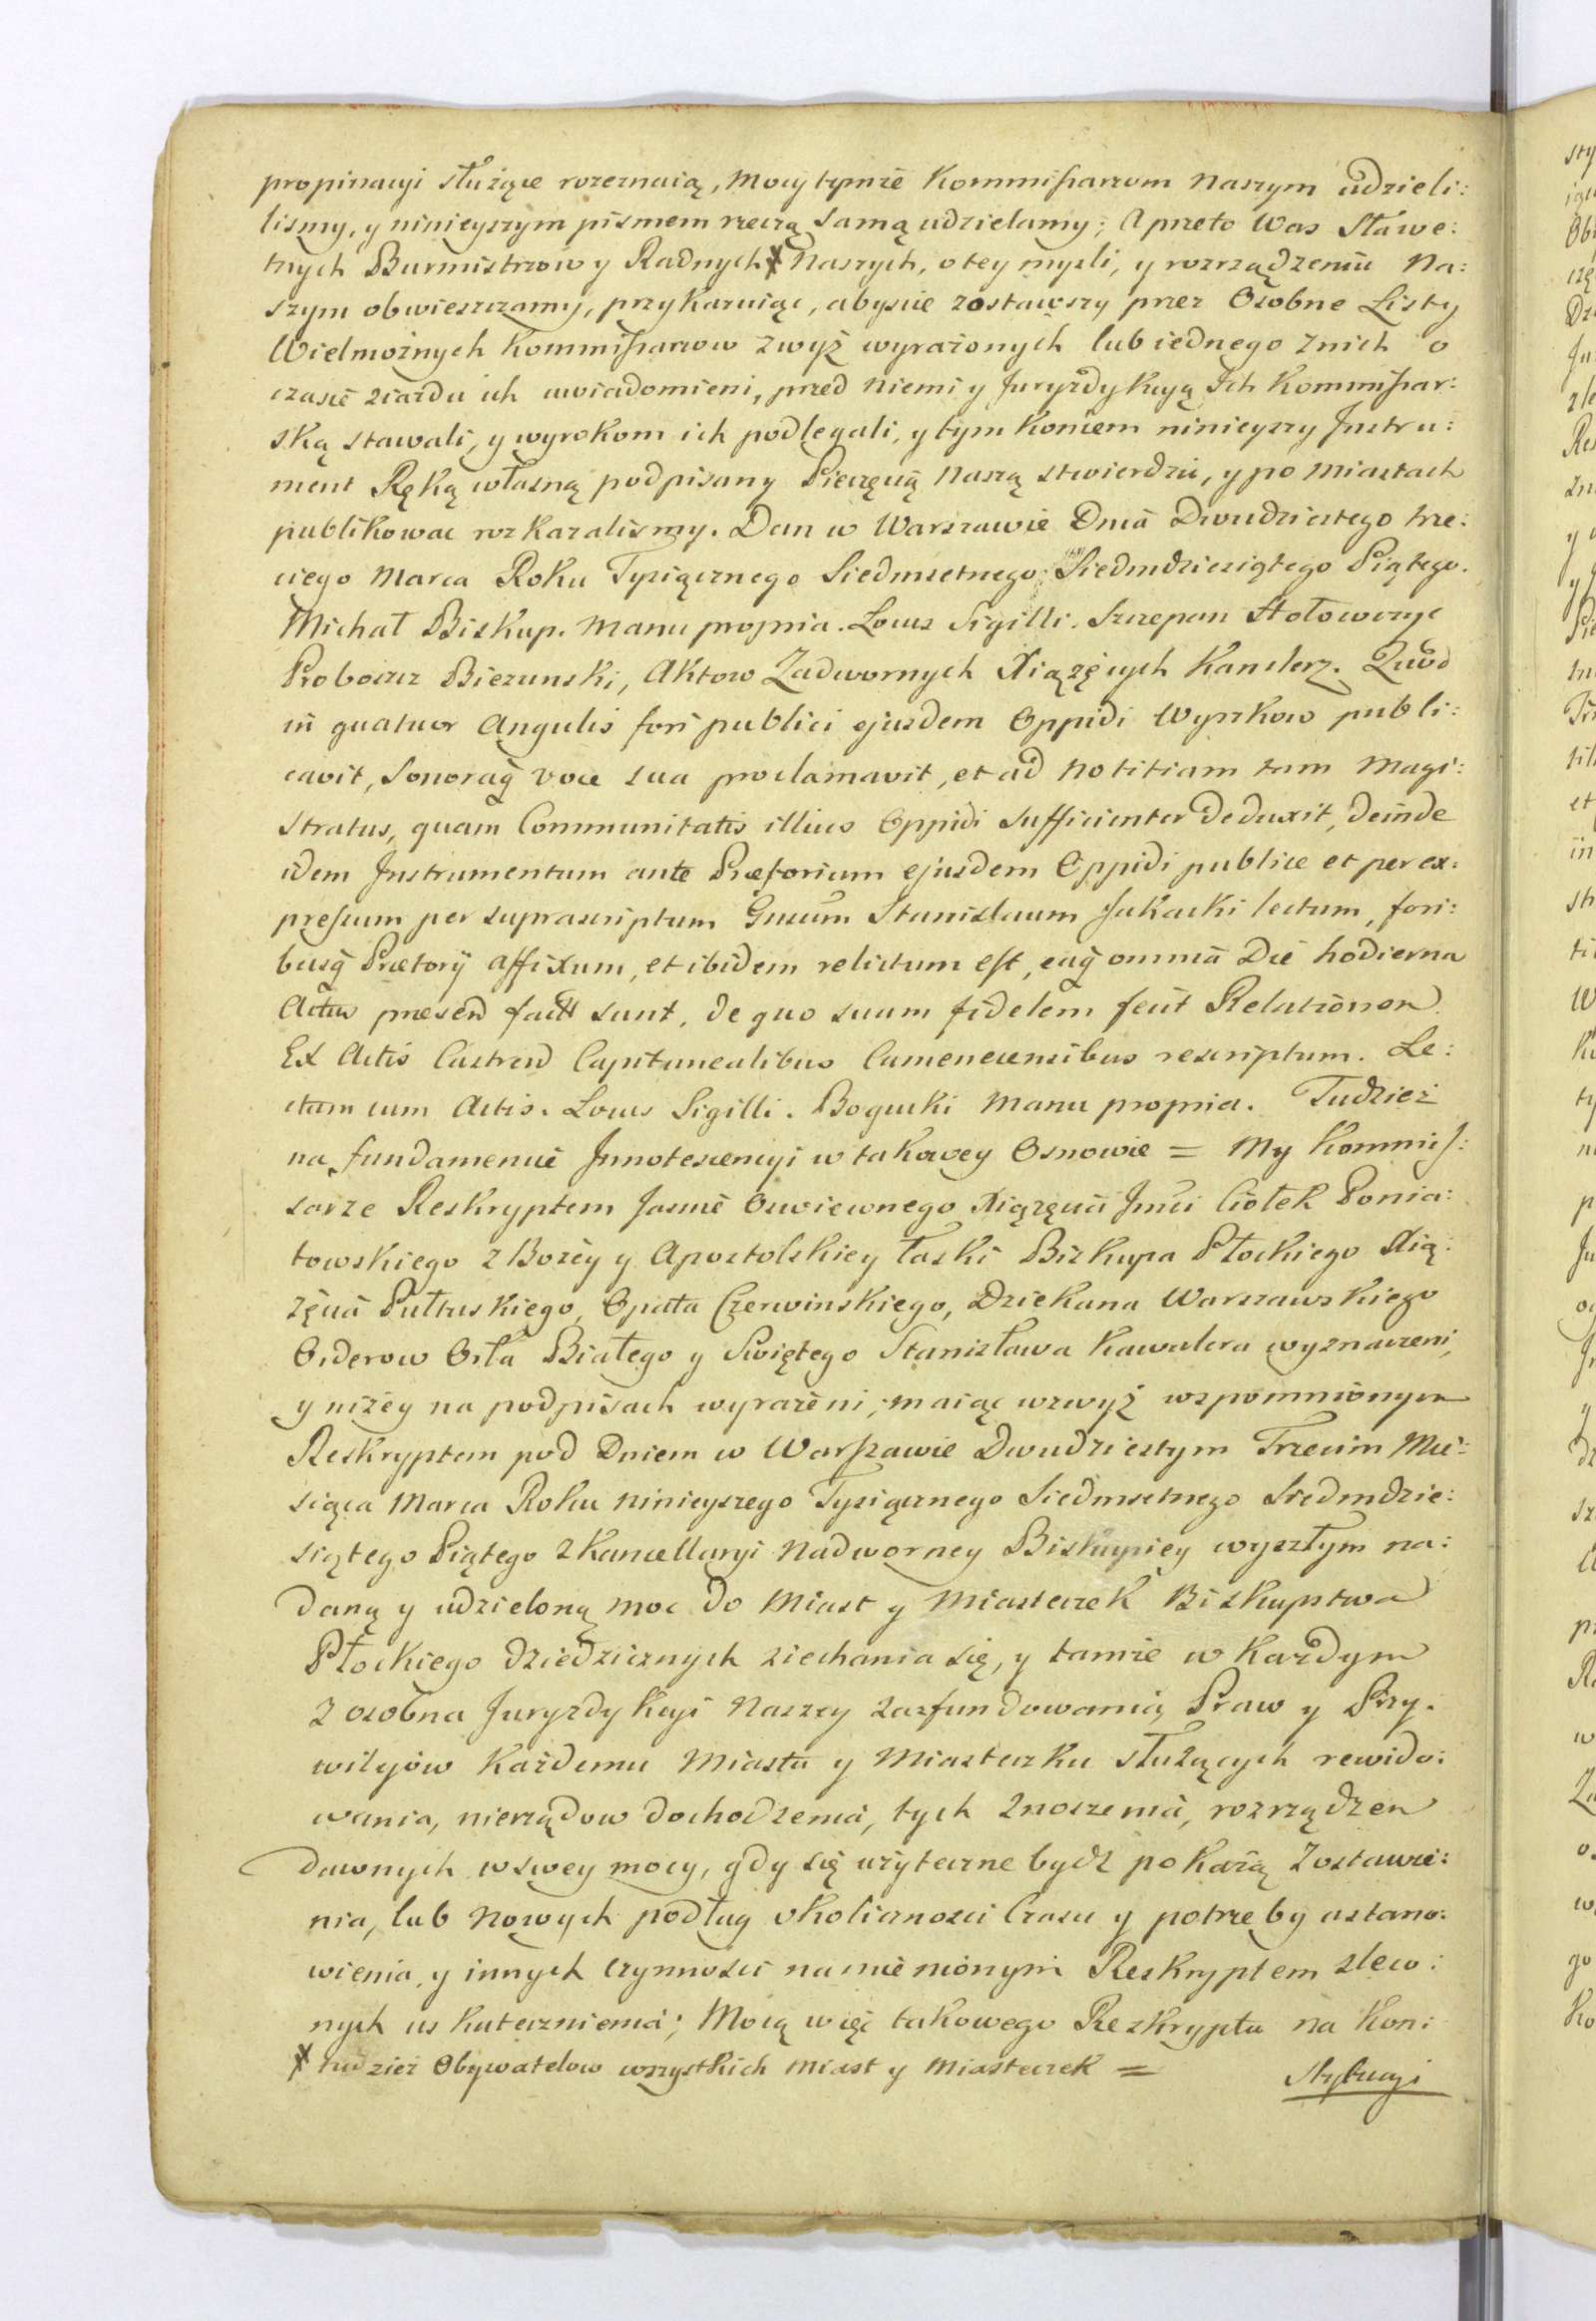 propinacyi służące rozeznaią, mocy tymże Kommissarzom naszym udzieli:
lismy, y ninieyszym pismem rzeczą samą udzielamy; A przeto Was Sławe:
tnych Burmistrzow y Radnych ӿ Naszych, o tey mysli, y rozrządzeniu Na:
szym obwieszczamy, przykazuiąc, abyscie zostawszy przez Osobne Listy
Wielmożnych Kommissarzow zwyż wyrażonych lub iednego z nich o
czasie ziazdu ich uwiadomieni, przed niemi y Juryzdykcyą Ich Kommissar:
ską stawali, y wyrokom ich podlegali, y tym koncem ninieyszy Instru:
ment Ręką własną podpisany Pieczęcią naszą stwierdzić, y po miastach
publikowac rozkazalismy. Dan w Warszawie Dnia Dwudziestego trze:
ciego Marca Roku Tysiącznego Siedmsetnego Siedmdziesiątego Piątego.
Michał Biskup. Manu propria. Locus Sigilli. Szczepan Hołowczyc
Proboszcz Biezunski, Aktow Zadwornych Xiążęcych Kanclerz. Quod
in quatuor Angulis fori publici ejusdem Oppidi Wyszkow publi:
cavit, sonoraq voce sua proclamavit, et ad notitiam tam Magi:
stratus, quam Communitatis illius Oppidi sufficienter deduxit, deinde
idem Instrumentum ante Prætorium ejusdem Oppidi publice et per ex:
pressum per suprascriptum Gnrum Stanislaum lectum, fori:
busq Prætorij affixum, et ibidem relictum est, eaq omnia Die hodierna
Actus præsen facta sunt, de quo suum fidelem fecit Relationem
Ex Actis Castren Capitanealibus Camenecensibus rescriptum. Le:
ctum cum Actis. Locus Sigilli. Bogucki Manu propria. Tudziez
na fundamencie Innotescencyi w takowey Osnowie = My Kommis:
sarze Reskryptem Jasnie Oswiecnego Xiążęcia Jmci Ciołek Ponia:
towskiego z Bożey y Apostolskiey łaski Biskupa Płockiego Xią:
żęcia Pułtuskiego, Opata Czerwinskiego, Dziekana Warszawskiego
Orderow Orła Białego y Swiętego Stanisława Kawalera wyznaczeni,
y niżey na podpisach wyrażeni, maiąc wzwyż wspomnionym
Reskryptem pod Dniem w Warszawie Dwudziestym Trzecim Mie:
siąca Marca Roku ninieyszego Tysiącznego Siedmsetnego Siedmdzie:
siątego Piątego z Kancellaryi Nadworney Biskupiey wyszłym na:
daną y udzieloną moc do Miast y Miasteczek Biskupstwa
Płockiego dziedzicznych ziechania się, y tamże w Każdym
z osobna Juryzdykcyi Naszey zasfundowania, Praw y Przy:
wilejów Każdemu Miastu y Miasteczku służących rewido:
wania, nierządow dochodzenia, tych znoszenia, rozrządzen
dawnych w swey mocy, gdy się użyteczne bydź pokażą zostawie:
nia, lub Nowych podług okolicznosci Czasu y potrzeby ustano:
wienia, y innych czynnosci namienionym Reskryptem zleco:
nych uskutecznienia; Mocą więc takowego Reskryptu na Kon:
ӿ tudzież Obywatelow wszystkich miast y miasteczek =
stytucyi